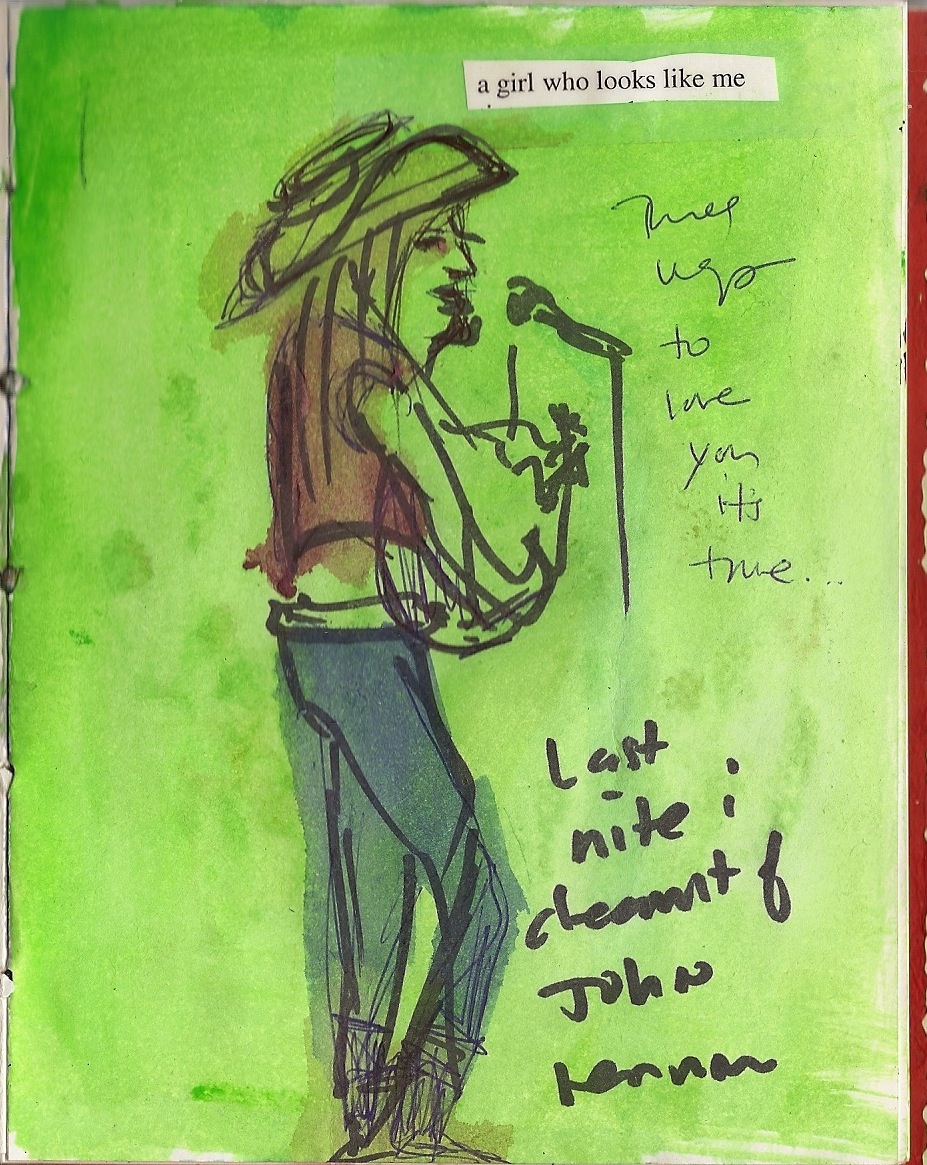 a girl who looks like me
to
love
you
it's
true...
Last
nite i
dreamt of
John
Lennon